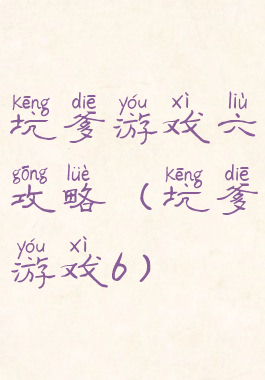 kēng diē yóu xì liù
坑爹游戏六
gōng lüè kēng diē
攻略（坑爹
yóu xì
游戏6）